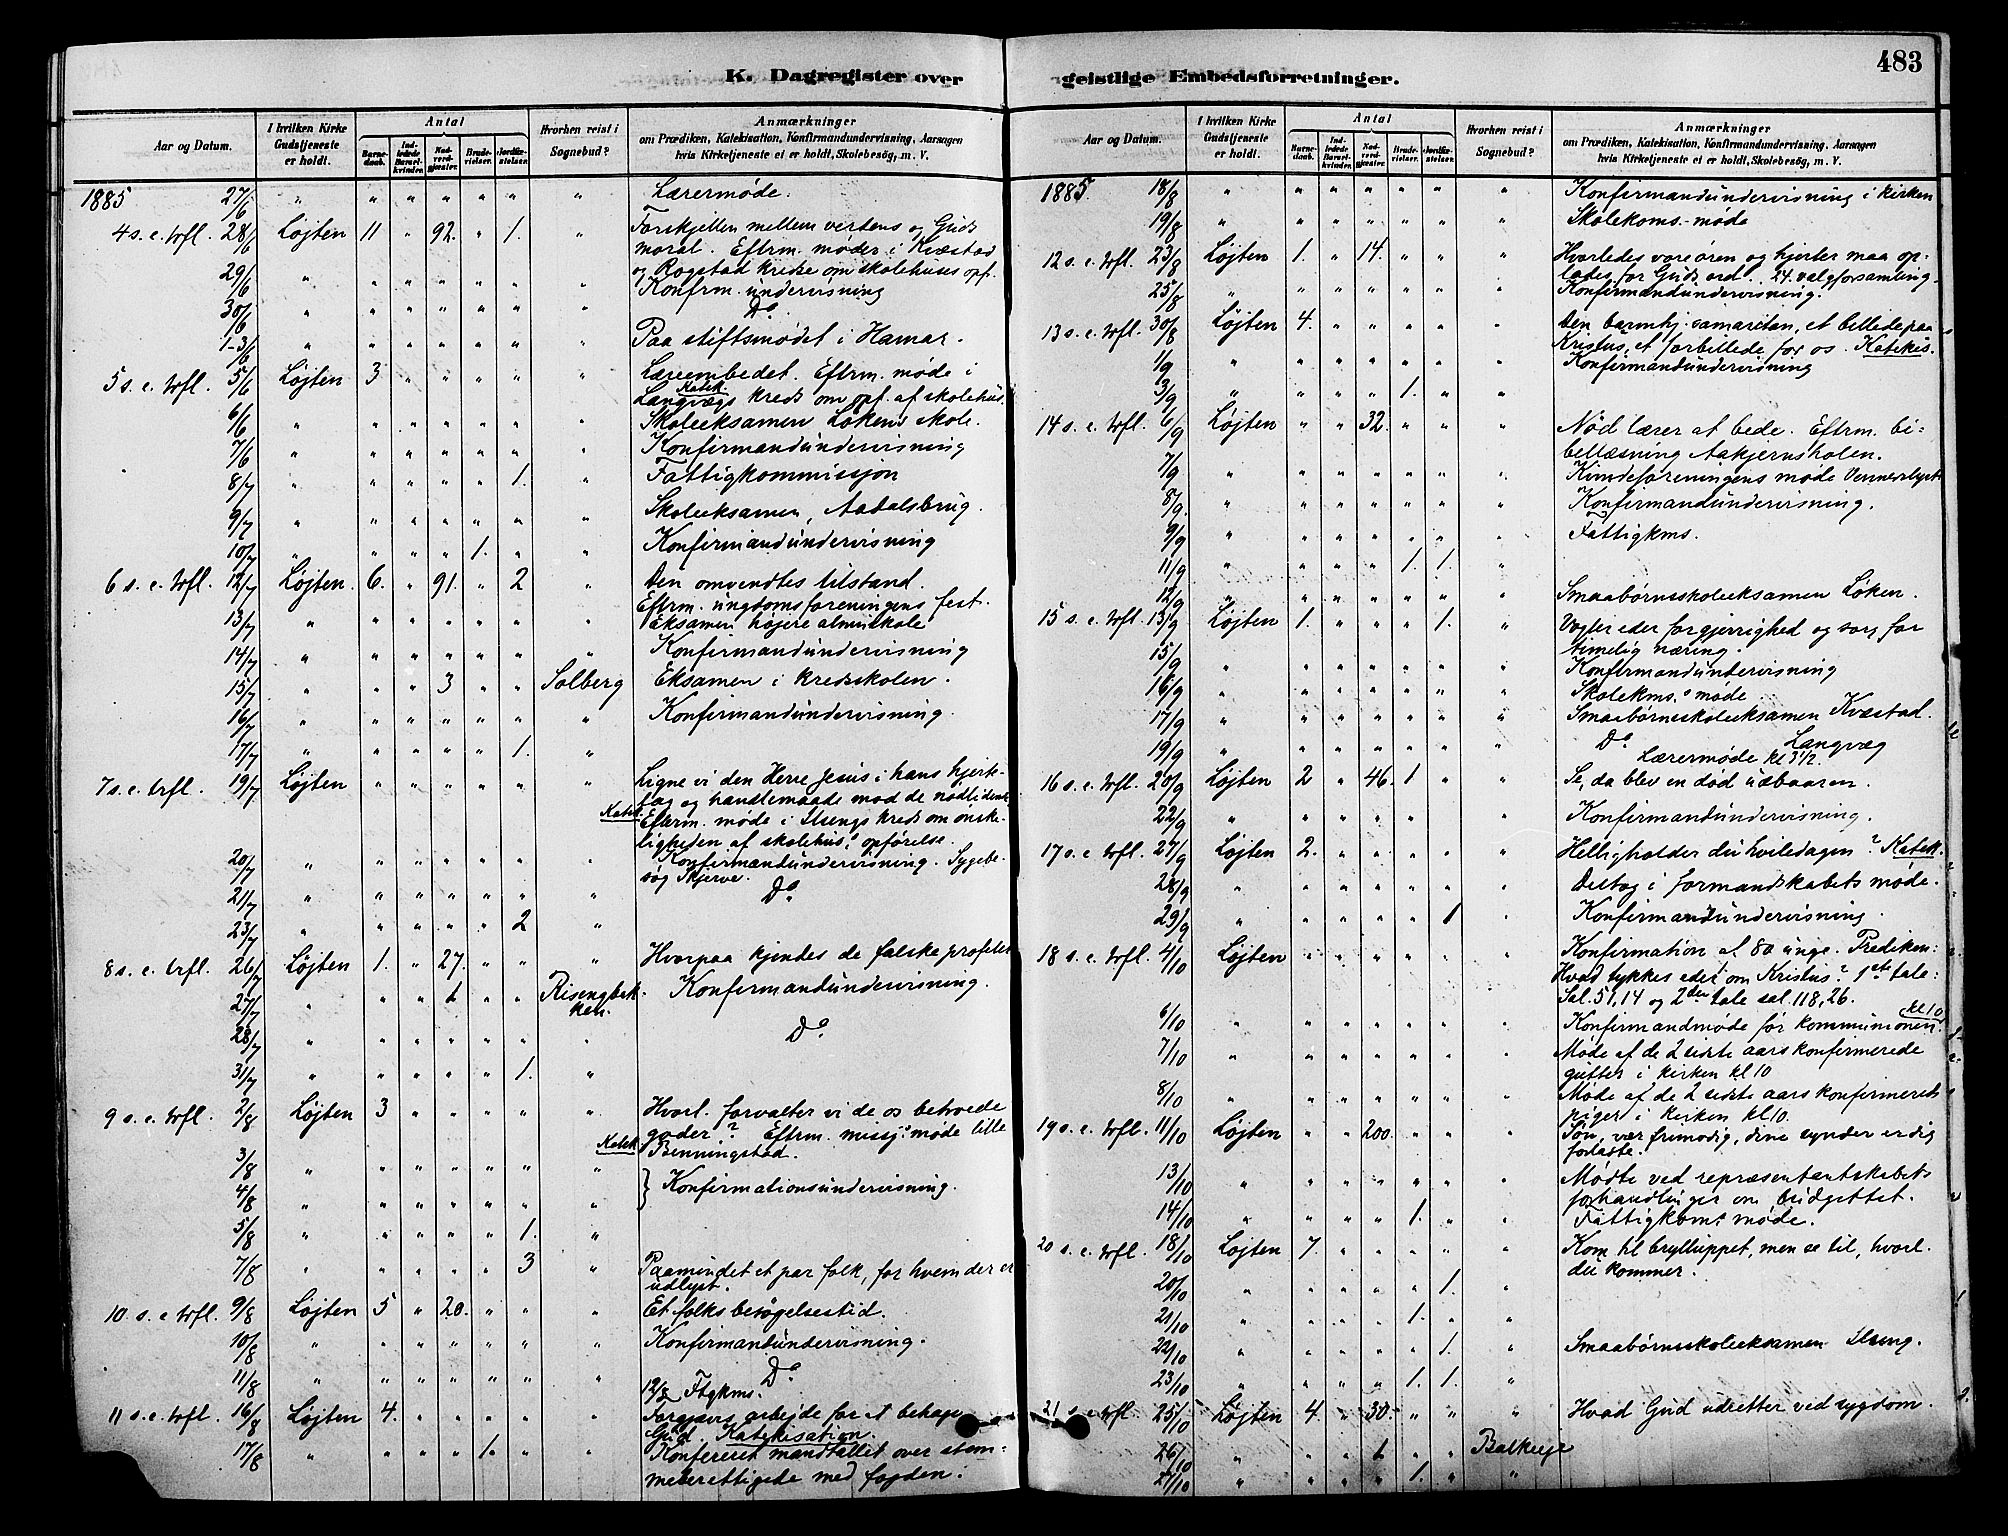 483
K. Dagregister over
geistlige Embedsforretninger.
Aar og Datum.
I hvilken Kirke Gudstjeneste er holdt.
Antal
Barnedaab.
Indledede Barselkvinder.
Nadverdgjæster.
Brudevielser.
Jordfæstelser.
Hvorhen reist i Sognebud?
Anmærkninger
om Prædiken, Katekisation, Konfirmandundervisning, Aarsagen
hvis Kirketjeneste ei er holdt, Skolebesøg, m. V.
1885 27/6 " " " " " " " Lærermøde.
4 s. e. trfl. 28/6 Løjten 11 " 92. " 1. " Forskjellen mellem verdens og Guds
moral. Eftrm. møder i Kvæstad
29/6 " " " " " " " og Rogstad kredse om skolehuses opf.
Konfrm. undervisning
30/6 " " " " " " " Do
1-3/6 " " " " " " " Paa stiftsmødet i Hamar.
5 s. e. trfl. 5/6 Løjten 3 " " " " " Læreembedet. Eftrm. møde i
Katek.
Langvægs kreds om opf. af skolehus.
6/6 " " " " " " " Skoleeksamen Løkens skole.
7/6 " " " " " " " Konfirmandundervisning
8/7 " " " " " 1. " Fattigkommissjon
9/7 " " " " " " " Skoleeksamen, Aadalsbrug.
10/7 " " " " 1. " " Konfirmandundervisning
6 s. e. trfl. 12/7 Løjten 6. " 91. " 2 " Den omvendtes tilstand.
Eftrm. ungdomsforeningens fest.
13/7 " " " " " " " Eksamen højere almuskole
14/7 " " " " " " " Konfirmandundervisning
15/7 " " " 3 " " Solberg Eksamen i kredsskolen.
16/7 " " " " " " " Konfirmandundervisning.
17/7 " " " " " 1. "
7 s. e. trfl. 19/7 Løjten " " " " " " Ligne vi den Herre Jesus i hans hjerte-
lag og handlemaade mod de nødlidende
Katek. Eftrm. møde i Ilsengs kreds om ønske-
ligheden af skolehus' opførelse.
20/7 " " " " " " " Konfirmandundervisning. Sygebe-
søg Skjerve.
21/7 " " " " " " " Do
23/7 " " " " " 2 "
8 s. e. trfl. 26/7 Løjten 1. " 27. " " " Hvorpaa kjendes de falske profeter
27/7 " " " 1 " " Risengbak- Konfirmandundervisning.
ken.
28/7 " " " " " " " Do
31/7 " " " " " 1. "
9 s. e. trfl. 2/8 Løjten 3 " " " " " Hvorl. forvalter vi de os betroede
goder? Eftrm. missj.s møde lille
Katek Benningstad.
3/8 " " " " " " "
4/8 " " " " " " " } Konfirmationsundervisning.
5/8 " " " " " 1. "
7/8 " " " " " 3 " Paamindet et par folk, for hvem der er
udlyst.
10. s. e. trfl. 9/8 Løjten 5 " 20. " " " Et folks besøgelsestid.
10/8 " " " " " " " Konfirmandundervisning.
11/8 " " " " " " " Do
12/8 Ftgkms.
11 s. e. trfl. 16/8 Løjten 4. " " " " " Forgjæves arbejde for at behage
Gud. Katekisation.
17/8 " " " " 1. " " Konfereret mandtallet over stem-
meberettigede med fogden.
Aar og Datum.
I hvilken Kirke Gudstjeneste er holdt.
Antal
Barnedaab.
Indledede Barselkvinder.
Nadverdgjæster.
Brudevielser.
Jordfæstelser.
Hvorhen reist i Sognebud?
Anmærkninger
om Prædiken, Katekisation, Konfirmandundervisning, Aarsagen
hvis Kirketjeneste ei er holdt, Skolebesøg, m. V.
1885. 18/8 " " " " " " " Konfirmandundervisning i kirken
19/8 " " " " " " " Skolekoms.-møde
12 s. e. trfl. 23/8 Løjten 1. " 14. " " " Hvorledes vore øren og hjerter maa op-
lades for Guds ord. 24. valgforsamling.
25/8 " " " " " " " Konfirmandundervisning.
13 s. e. trfl. 30/8 Løjten 4. " " " " " Den barmhj. samaritan, et billede paa
Kristus, et forbillede for os. Katekis.
1/9 " " " " " " " Konfirmandundervisning
3/9 " " " " 1. " "
14 s. e. trfl. 6/9 Løjten " " 32. " " " Nød lærer at bede. Eftrm. bi-
bellæsning Aakjernsholen.
7/9 " " " " " " " Kvindeforeningens møde Vennerslyst
8/9. " " " " " " " Konfirmandundervisning.
9/9 " " " " " " " Fattigkms.
11/9 " " " " 1. 1. "
12/9 " " " " " " " Smaabørnsskoleeksamen Løken.
15 s. e. trfl. 13/9 Løjten 1. " " " 1. " Vogter eder for gjerrighed og sorg for
timelig næring.
15/9 " " " " " " " Konfirmandundervisning
16/9 " " " " " " " Skolekms.s møde
17/9 " " " " " " " Smaabørnsskoleeksamen Kvæstad.
19/9 " " " " " " " Do Langvæg
Lærermøde kl 3 1/2.
16 s. e. trfl. 20/9 Løjten 2 " 46. 1. " " Se, da blev en død udbaaren.
22/9 " " " " " " " Konfirmandundervisning.
17 s. e. trfl. 27/9 Løjten 2. " " " " " Helligholder du hviledagen? Katek.
28/9 " " " " " " " Deltog i formandskabets møde.
29/9 " " " " " 1 " Konfirmandundervisning.
18 s. e. trfl. 4/10 Løjten " " " " " " Konfirmation af 80 unge. Prediken:
Hvad tykkes eder om Kristus? 1ste tale:
Sal. 51,14 og 2den tale sal. 118,26.
kl 10
6/10 " " " " " " " Konfirmandmøde før kommunionen.
7/10 " " " " " " " Møde af de 2 sidste aars konfirmerede
gutter i kirken kl 10
8/10 " " " " " " " Møde af de 2 sidste aars konfirmerede
piger i kirken kl 10.
19 s. e. trfl. 11/10 Løjten " " 200. " " " Søn, vær frimodig, dine synder er dig
forladte.
13/10 " " " " " " " Mødte ved repræsentantskabets
forhandlinger om budgettet.
14/10 " " " " 1. " " Fattigkoms. møde.
20 s. e. trfl. 18/10 Løjten 7. " " " " " Kom til brylluppet, men se til, hvorl.
du kommer.
20/10 " " " " " 1. "
21/10 " " " " 1. " "
22/10 " " " " " 1. " Smaabørnsskoleeksamen Ilseng.
23/10 " " " " 1. 1. "
21 s. e. trfl. 25/10 Løjten 4. " 30. " " " Hvad Gud udretter ved sygdom.
26/10 " " " 1 " "
27/10 " " " " 1. " "